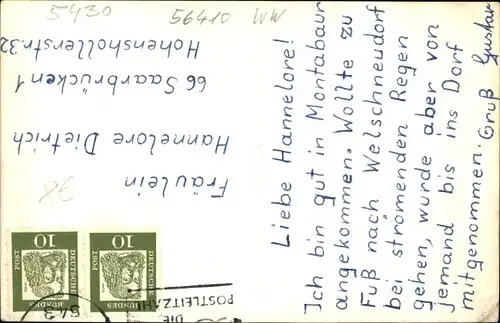 5430
56410 WW
Liebe Hannelore!
Ich bin gut in Montabaur
angekommen. Wollte zu
Fuß nach Welschneudorf
bei strömenden Regen
gehen, wurde aber von
jemand bis ins Dorf
mitgenommen. Gruß Gustav
Fräulein
Hannelore Dietrich
66 Saarbrücken 1
Hohenzollerstr. 32
DEUTSCHE
BUNDES
POST
10
DEUTSCHE
BUNDES
POST
10
543
DIE
POSTLEITZAHL